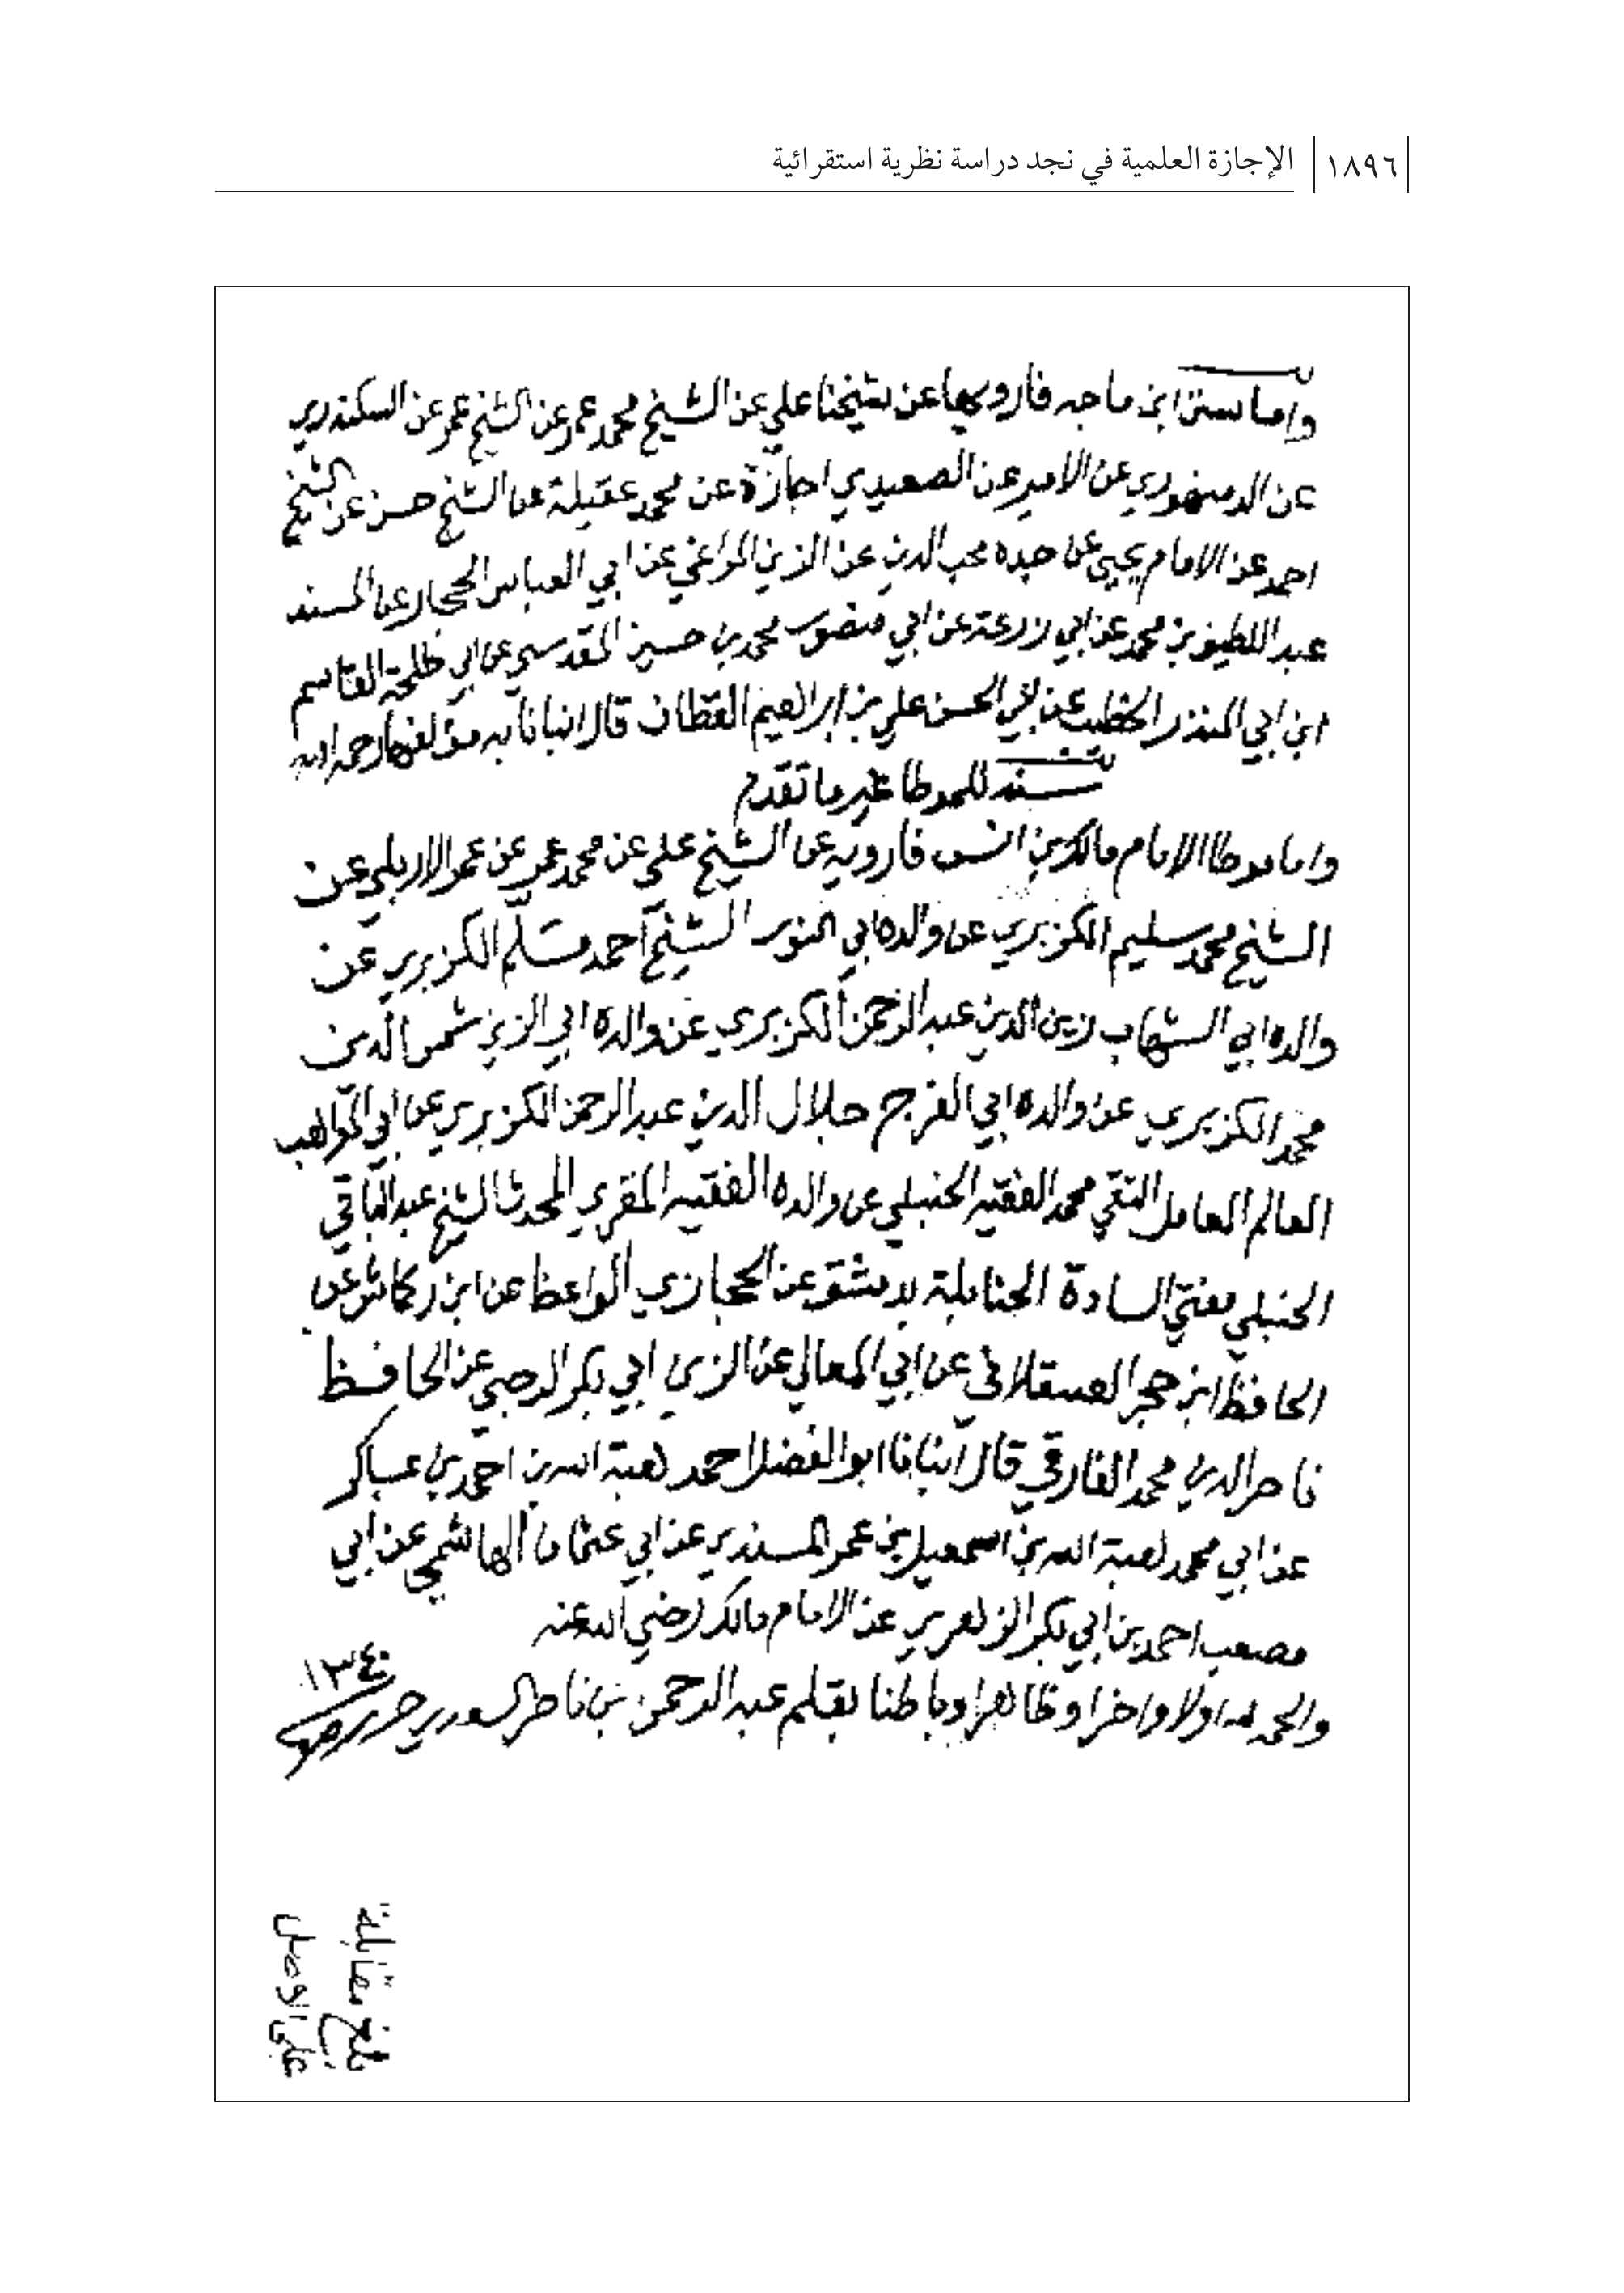 ١٨٩٦ الإجازة العلمية في نجد دراسة نظرية استقرائية
واما سنن ابن ماجه فارويها عن شيخنا علي عن الشيخ محمد عمر عن الشيخ عمر عن السكندري
عن الدمنهوري عن الامير عن الصعيدي اجازة عن محمد عقيلة عن الشيخ حسن عن الشيخ
احمد عن الامام يحيى عن جده محب الدين عن الزين المراغي عن ابي العباس الحجار عن المسند
عبد اللطيف بن محمد عن ابي زرعة عن ابي منصور محمد بن حسين المقدسي عن ابي طلحة القاسم
ابن ابي المنذر الخطيب عن ابي الحسن علي بن ابراهيم القطان قال انبانا به مؤلفها رحمه الله
سند للموطا غير ما تقدم
واما موطا الامام مالك بن انس فارويه عن الشيخ علي عن محمد عمر عن عمر الاربلي عن
الشيخ محمد سليم الكزبري عن والده ابي النور الشيخ احمد مسلم الكزبري عن
والده ابي الشهاب زين الدين عبد الرحمن الكزبري عن والده ابي الزين شمس الدين
محمد الكزبري عن والده ابي الفرج جلال الدين عبد الرحمن الكزبري عن ابي المواهب
العالم العامل التقي محمد الفقيه الحنبلي عن والده الفقيه المقري المحدث الشيخ عبد الباقي
الحنبلي مفتي السادة الحنابلة بدمشق عن الحجازي الواعظ عن ابن اركماش عن
الحافظ ابن حجر العسقلاني عن ابي المعالي عن الزين ابي بكر الرحبي عن الحافظ
ناصر الدين محمد الفارقي قال انبانا ابو الفضل احمد هبة الله بن احمد بن عساكر
عن ابي محمد هبة الله بن اسمعيل بن عمر المسندي عن ابي عثمان الهاشمي عن ابي
مصعب احمد بن ابي بكر الزهري عن الامام مالك رضي الله عنه
والحمد لله اولا واخرا وظاهرا وباطنا بقلم عبد الرحمن بن ناصر السعدي حرر
١٣٤٠
بلغ مقابلة
على الاصل